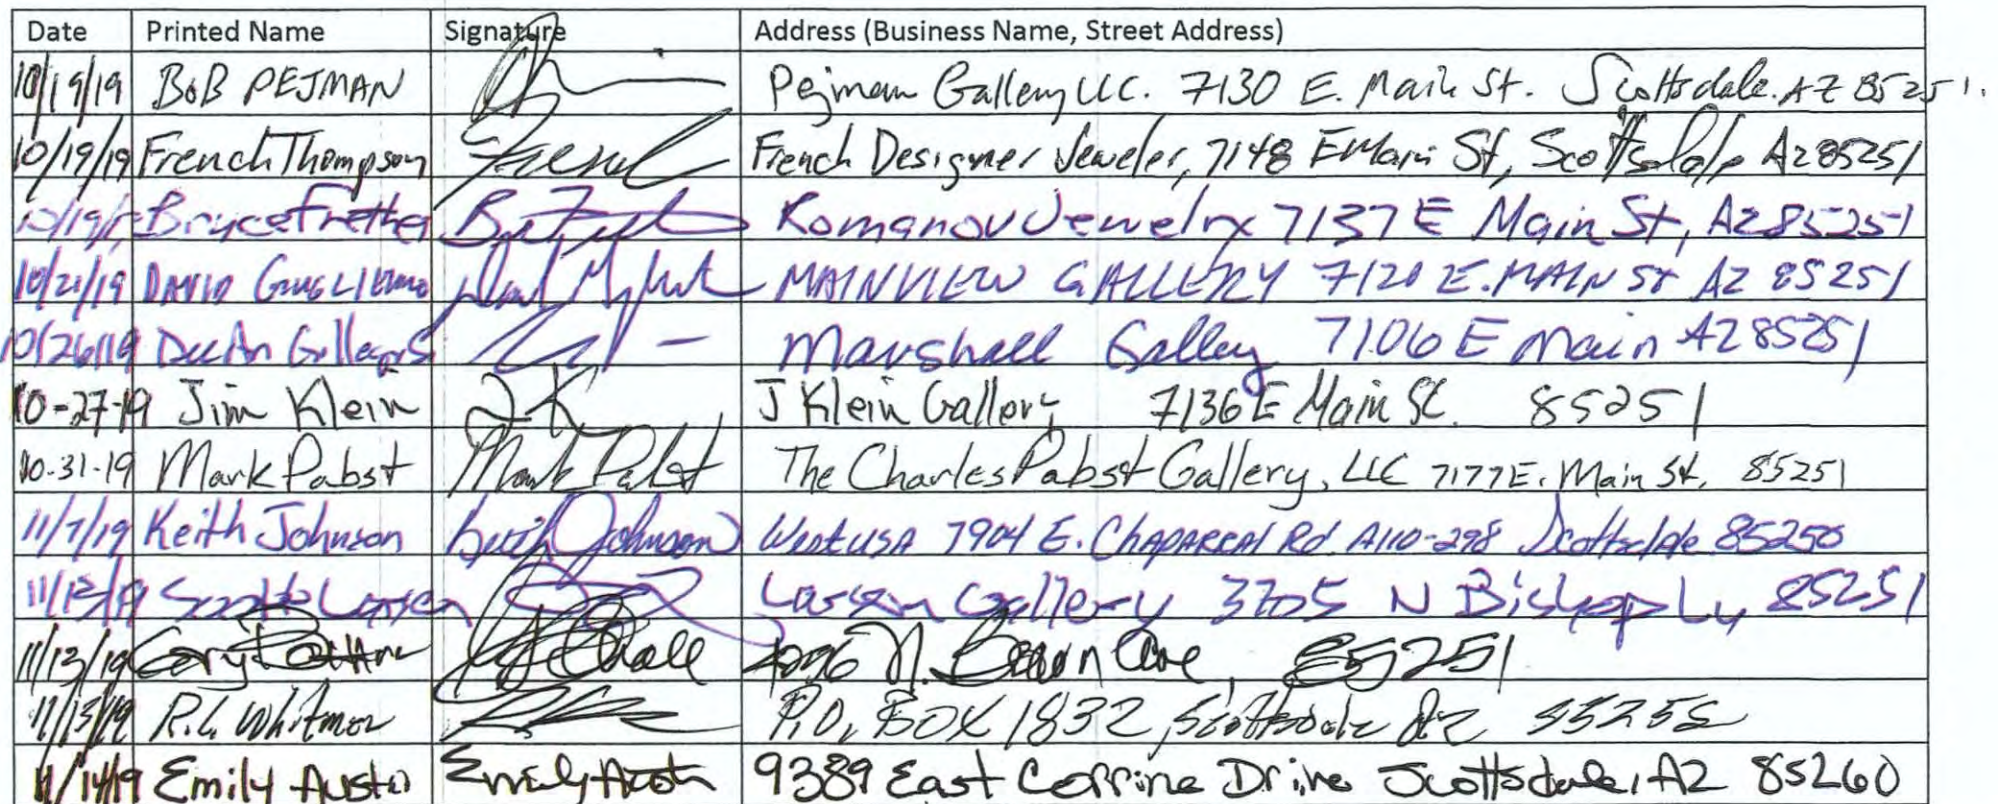 Date Printed Name Signature Address (Business Name, Street Address)
10/19/19 BOB PEJMAN Pejman Gallery LLC. 7130 E. Main St. Scottsdale. AZ 85251.
10/19/19 French Thompson French French Designer Jeweler, 7148 E Main St, Scottsdale AZ 85251
10/19/19 Bryce Romanov Jewelry 7137 E Main St, AZ 85251
10/21/19 DAVID MAINVIEW GALLERY 7120 E. MAIN St AZ 85251
10/26/19 Marshall Gallery 7106 E Main AZ 85251
10-27-19 Jim Klein JK J Klein Gallery 7136 E Main St. 85251
10-31-19 Mark Pabst Mark Pabst The Charles Pabst Gallery, LLC 7177 E. Main St. 85251
11/7/19 Keith Johnson Keith Johnson West USA 7904 E. CHAPARRAL Rd A110-298 Scottsdale 85250
Larsen Gallery 3705 N Bishop Ln 85251
11/13/19 Gary N. Brown Ave, 85251
11/13/19 R.L. Whitmer P.O. BOX 1832, Scottsdale AZ 85252
11/14/19 Emily Austin Emily Austin 9389 East Corrine Drive Scottsdale, AZ 85260